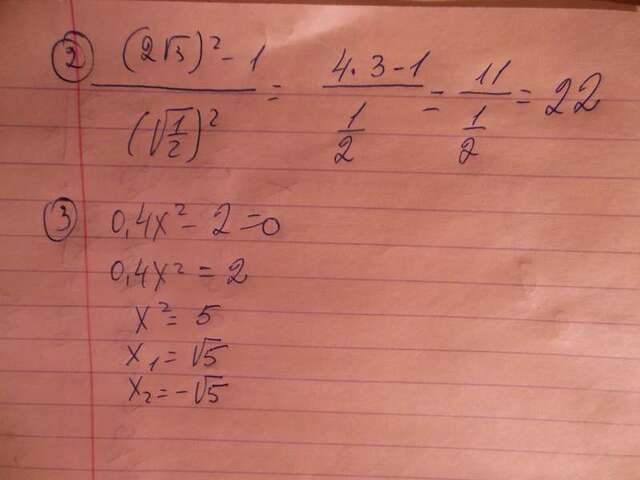 ② (2√3)² - 1 / (√1/2)² = 4·3-1 / 1/2 = 11 / 1/2 = 22
③ 0,4x² - 2 = 0
0,4x² = 2
x² = 5
x₁ = √5
x₂ = -√5